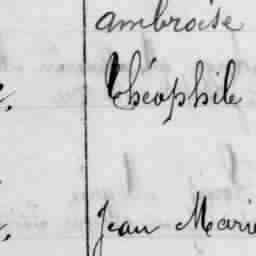 ambroise
théophile
Jean Marie